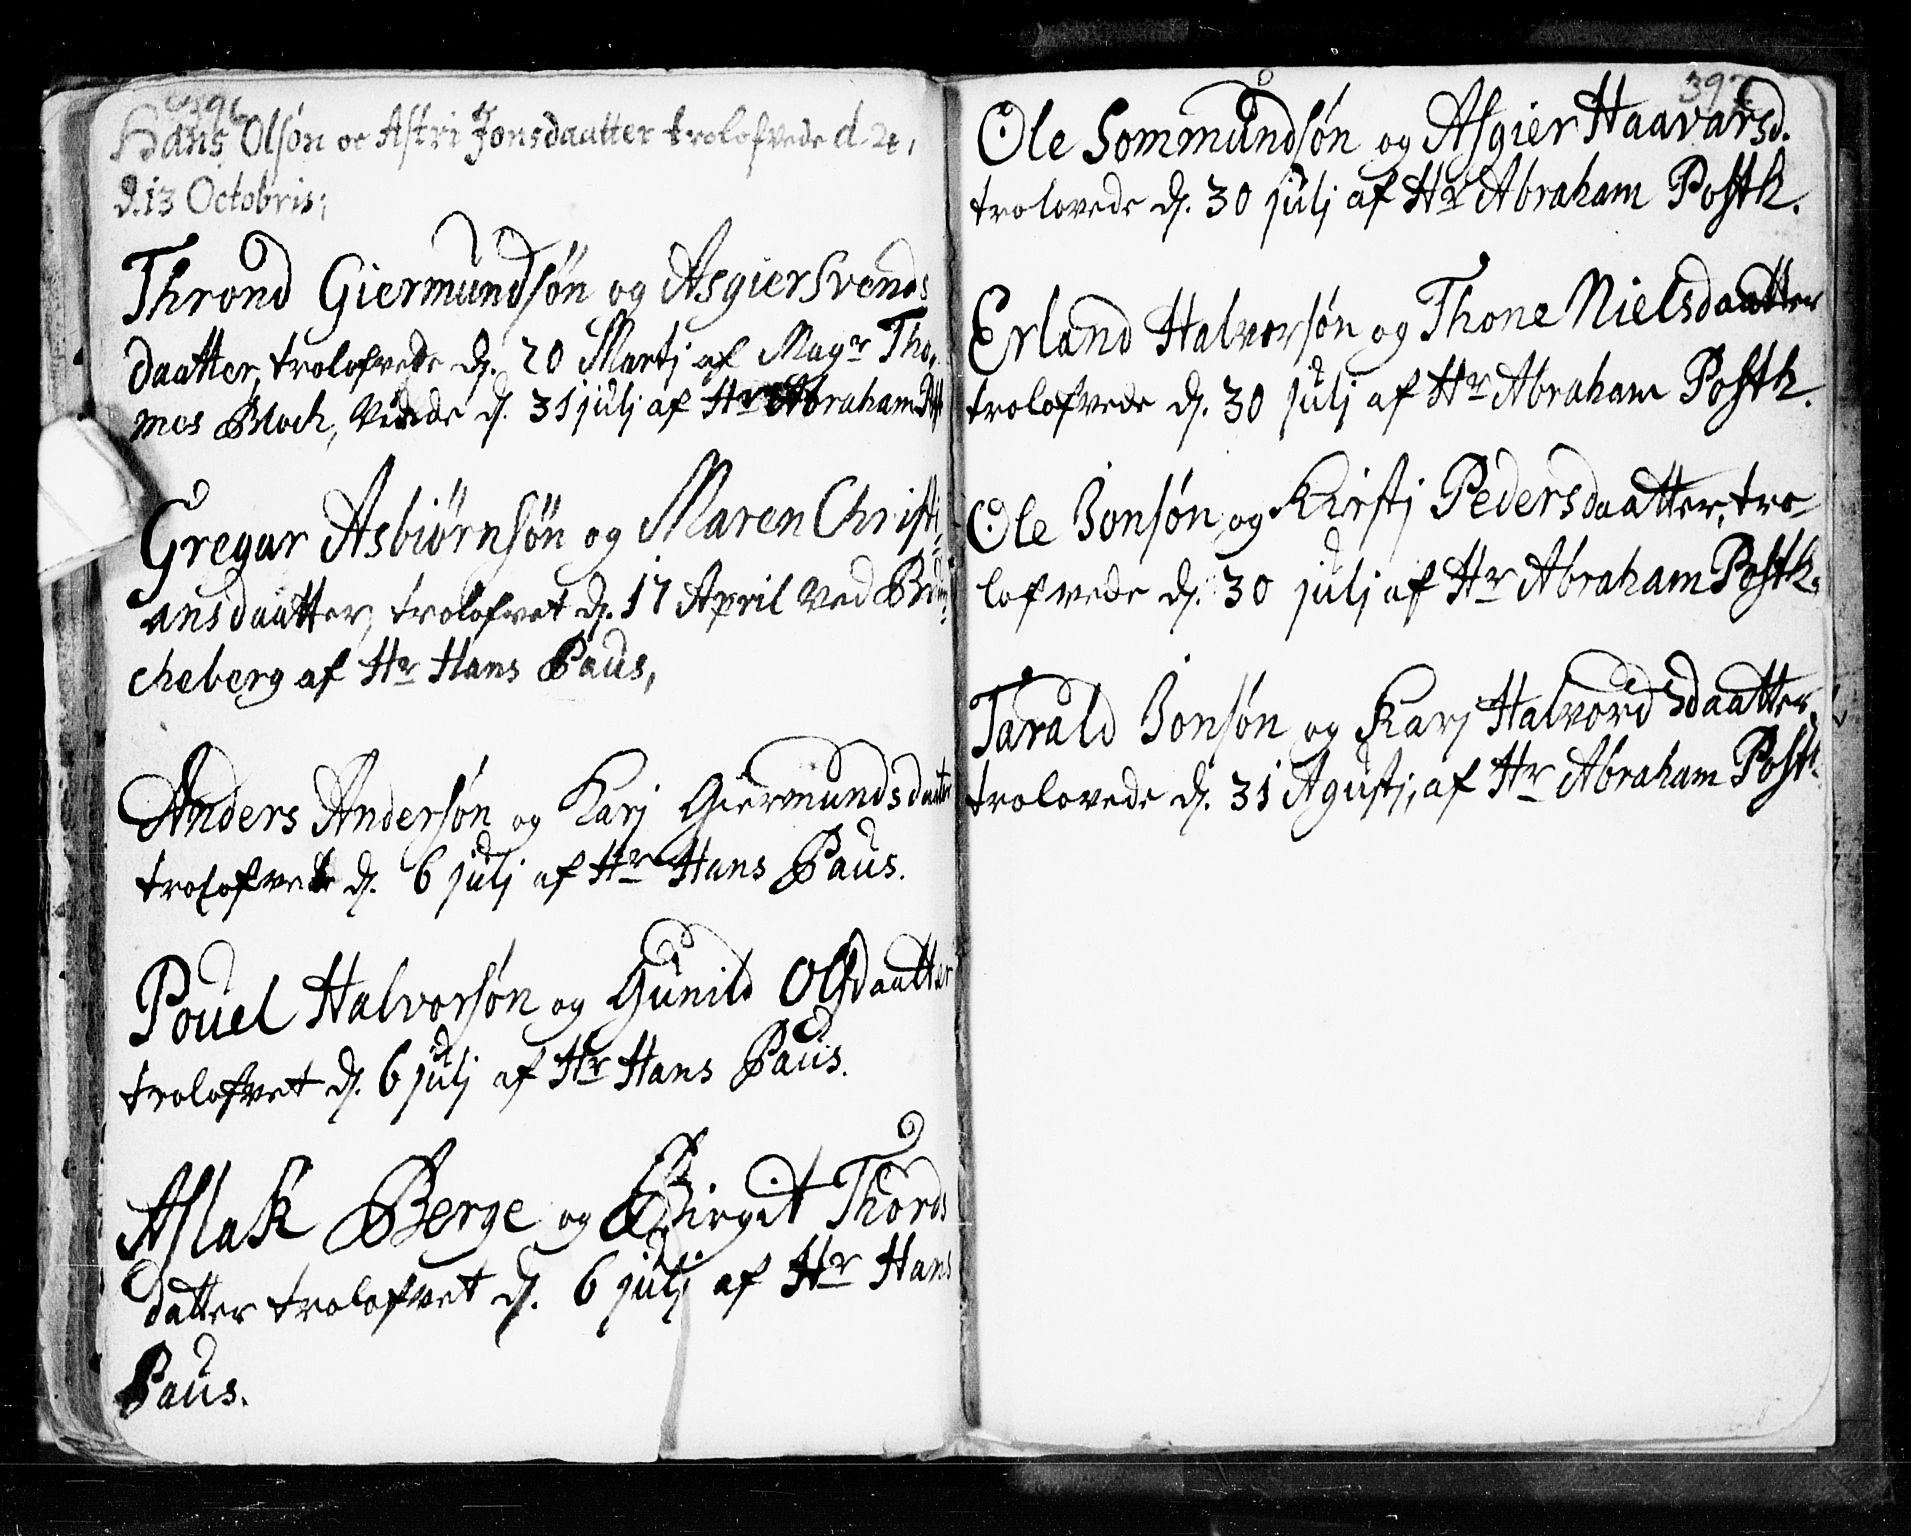 396
Hans Olsøn oc Astri Jonsdaatter trolofvede d. 24,
d. 13 Octobris;
Thrond Giermundsøn og Asgier Svends
daatter, trolofvede d. 20 Martj af Magr Tho,
mes Bloch, Viede d. 31 julj af Hr Abraham
Gregar Asbiørnsøn og Maren Christi,
ansdaatter, trolofvet d. 17 April ved
cheberg af Hr Hans Paus,
Anders Andersøn og Karj Giermundsdaatter
trolofvet d. 6 julj af Hr Hans Paus.
Pouel Halvorsøn og Gunild Olsdaatter
trolofvet d. 6 julj af Hr Hans Paus.
Aslak Berge og Birgit Thords
datter trolofvet d. 6 julj af Hr Hans
Paus.
397
Ole Sommundsøn og Asgier Haavarsd.
trolovede d. 30 julj af Hr Abraham Postk.
Erland Halvorsøn og Thone Nielsdaatter
trolofvede d. 30 julj af Hr Abraham Postk.
Ole Jonsøn og Kirstj Pedersdaatter, tro
lofvede d. 30 julj af Hr Abraham Postk.
Tarald Jonsøn og Karj Halvordsdaatter
trolovede d. 31 Agustj, af Hr Abraham Postk.